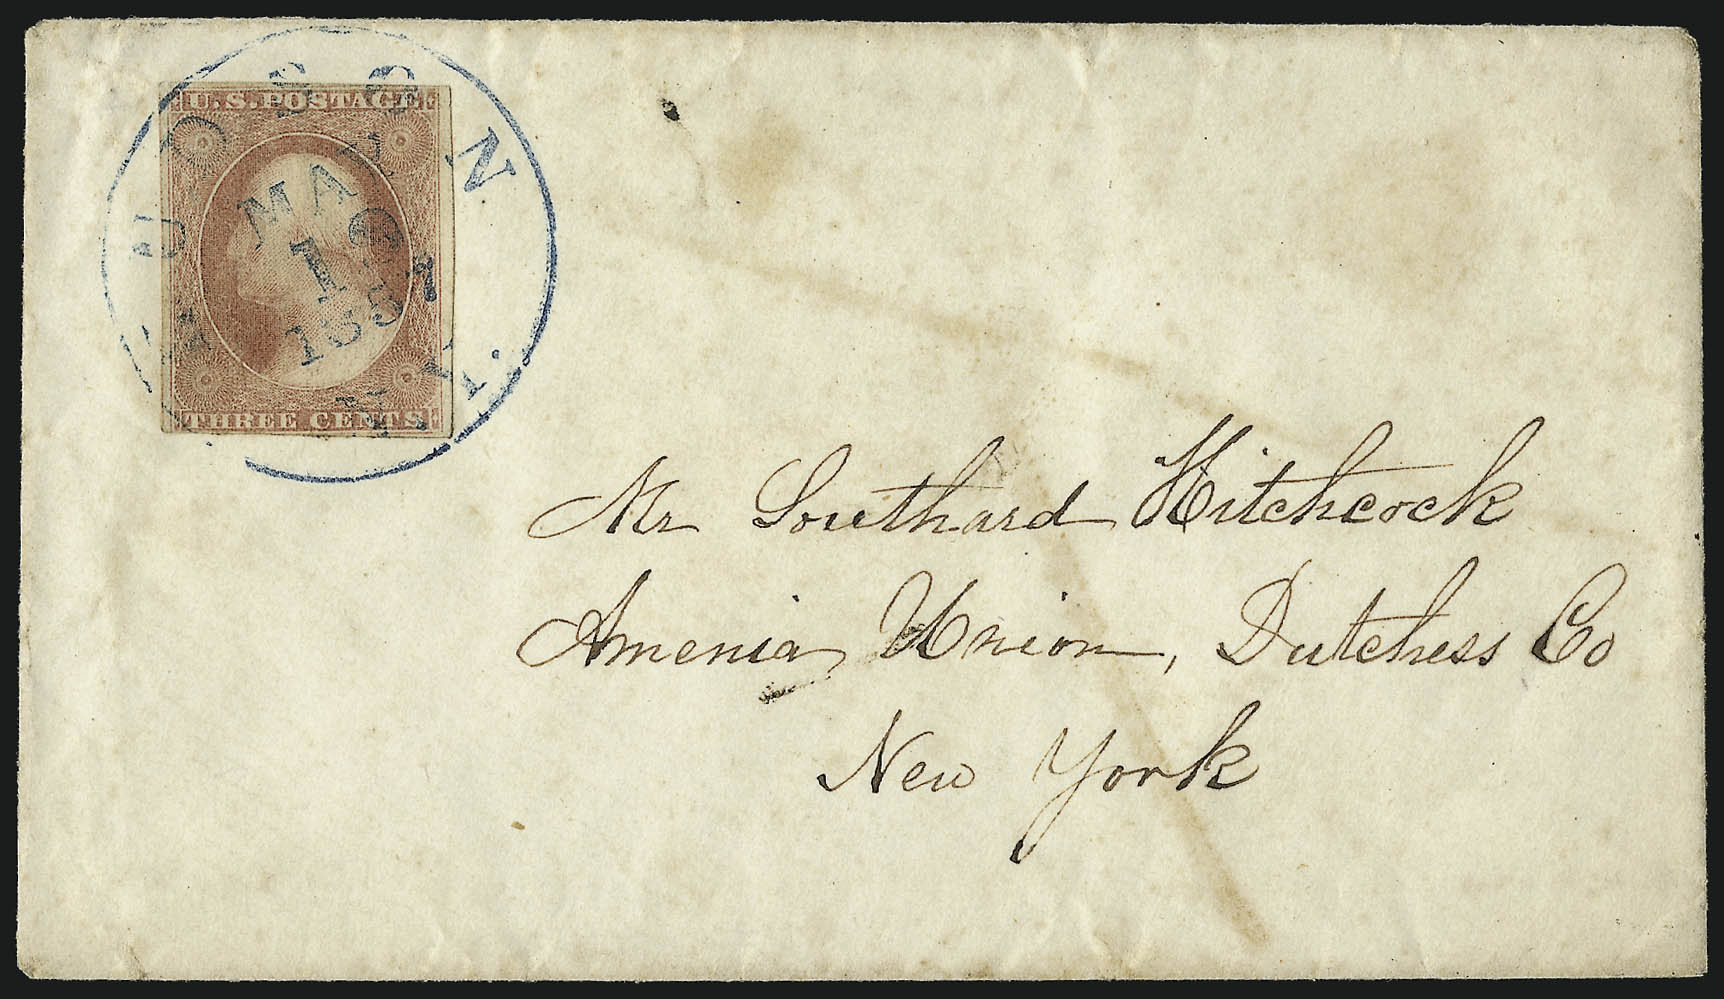 U.S. POSTAGE
HUDSON N.Y.
MAY
1
6
1857
THREE CENTS
Mr Southard Hitchcock
Amenia Union, Dutchess Co
New York